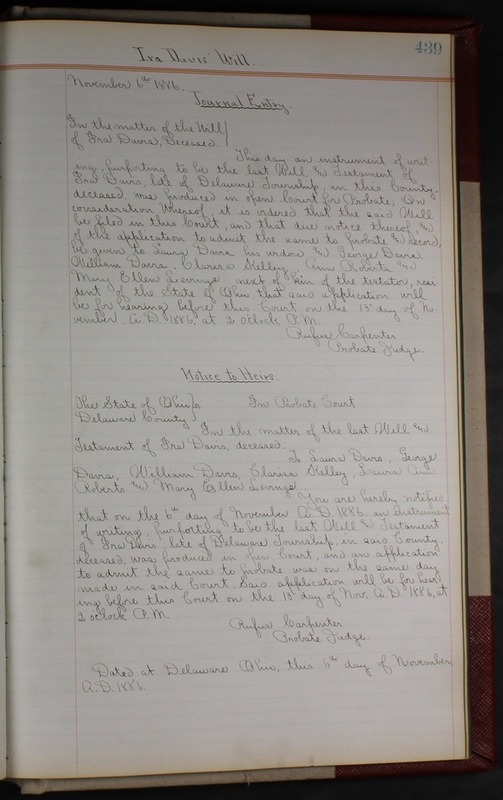 439
Ira Davis' Will.
November 6th 1886.
Journal Entry.
In the matter of the Will
of Ira Davis, Deceased.
This day an instrument of writ-
ing, purporting to be the last Will & Testament of
Ira Davis, late of Delaware Township, in this County,
deceased, was produced in open Court for Probate. On
consideration Whereof, it is ordered that the said Will
be filed in this Court, and that due notice thereof, &
of the application to admit the same to probate & record,
be given to Laura Davis his widow & George Davis
William Davis, Clarisa Kelley, Ann Roberts &
Mary Ellen Levings next of kin of the testator, resi-
dent of the State of Ohio, that said application will
be for hearing before this Court on the 13th day of No-
vember, A.D. 1886, at 2 oclock P.M.
Rufus Carpenter
Probate Judge.
Notice to Heirs
The State of Ohio } In Probate Court
Delaware County
In the matter of the last Will &
Testament of Ira Davis, deceased.
To Laura Davis, George
Davis, William Davis, Clarisa Kelley, Laura Ann
Roberts & Mary Ellen Levings.
You are hereby notified
that on the 6th day of November A.D. 1886. an instrument
of writing, purporting to be the last Will & Testament
of Ira Davis, late of Delaware Township, in said County,
deceased, was produced in open Court, and an application
to admit the same to probate was on the same day
made in said Court. Said application will be for hear
ing before this Court on the 13th day of Nov. A.D. 1886, at
2 oclock P.M.
Rufus Carpenter
Probate Judge.
Dated at Delaware Ohio, this 6th day of November
A.D. 1886.